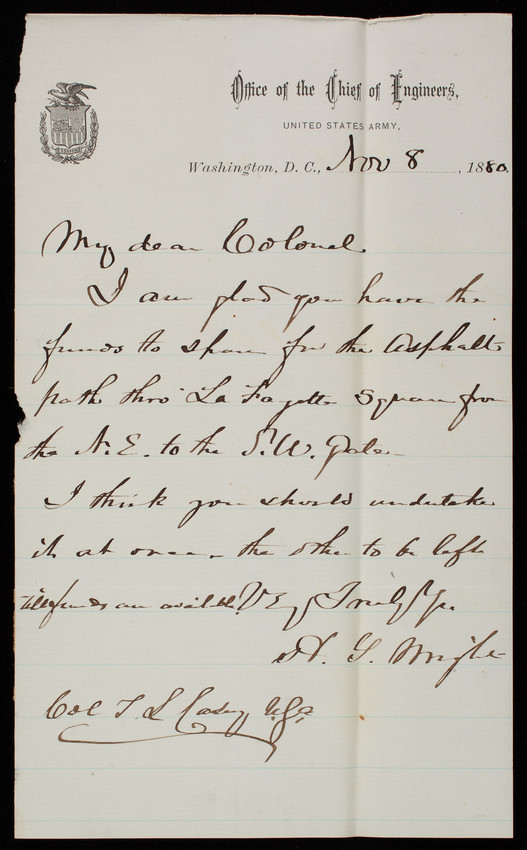 Office of the Chief of Engineers,
UNITED STATES ARMY,
Washington, D. C., Nov 8, 1880.
My dear Colonel
I am glad you have the
funds to spare for the Asphalt
path thro' La Fayette Square from
the N.E. to the S.W. Gate.
I think you should undertake
it at once – the other to be left
till funds are available. Very Truly Yrs.
H. G. Wright
Col T. L. Casey